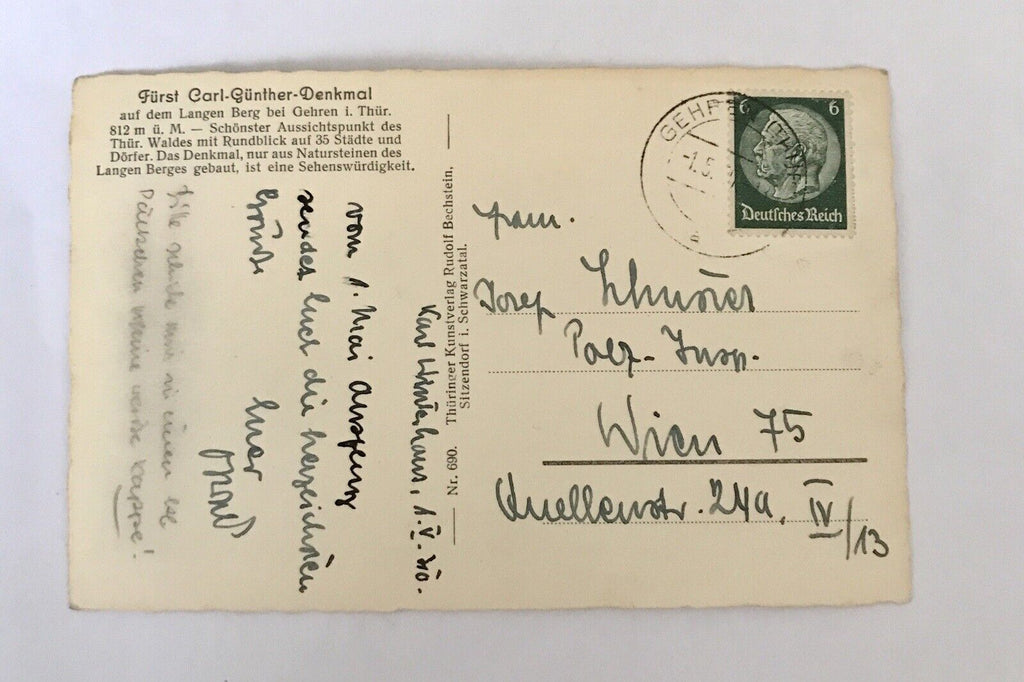 Fürst Carl-Günther-Denkmal
auf dem Langen Berg bei Gehren i. Thür.
812 m ü. M. — Schönster Aussichtspunkt des
Thür. Waldes mit Rundblick auf 35 Städte und
Dörfer. Das Denkmal, nur aus Natursteinen des
Langen Berges gebaut, ist eine Sehenswürdigkeit.
1. V. 40.
vom 1. Mai
sendet Euch die herzlichsten
Grüße
Euer
Bitte
meine weiße Kappe!
Nr. 690. Thüringer Kunstverlag Rudolf Bechstein,
Sitzendorf i. Schwarzatal.
GEHREN (THÜR)
-1.5.
a
6 6
Deutsches Reich
Fam.
Josef
Polz-Insp.
Wien 75
Quellenstr. 24a, IV/13